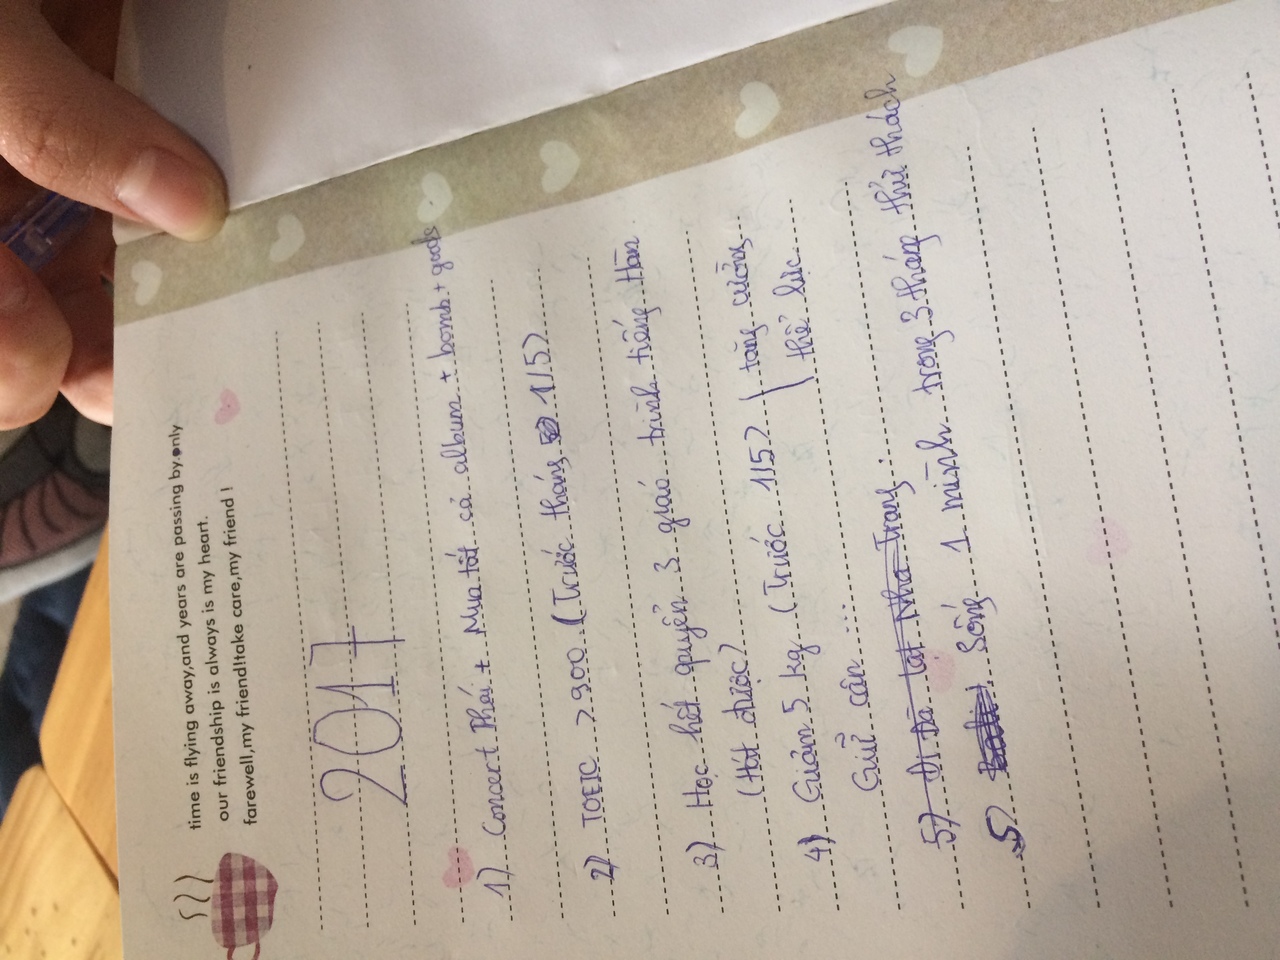 time is flying away,and years are passing by.only
our friendship is always is my heart.
farewell,my friend!take care,my friend !
2017
1) Concert Thái + Mua tất cả album + bomb + goods
2) TOEIC > 900 (Trước tháng 1/5)
3) Học hết quyển 3 giáo trình tiếng Hàn
(Hát được)
4) Giảm 5 kg (Trước 1/5) tăng cường
Giữ cân ... thể lực
5) Đi Đà Lạt Nha Trang.
5) Sống 1 mình trong 3 tháng thử thách